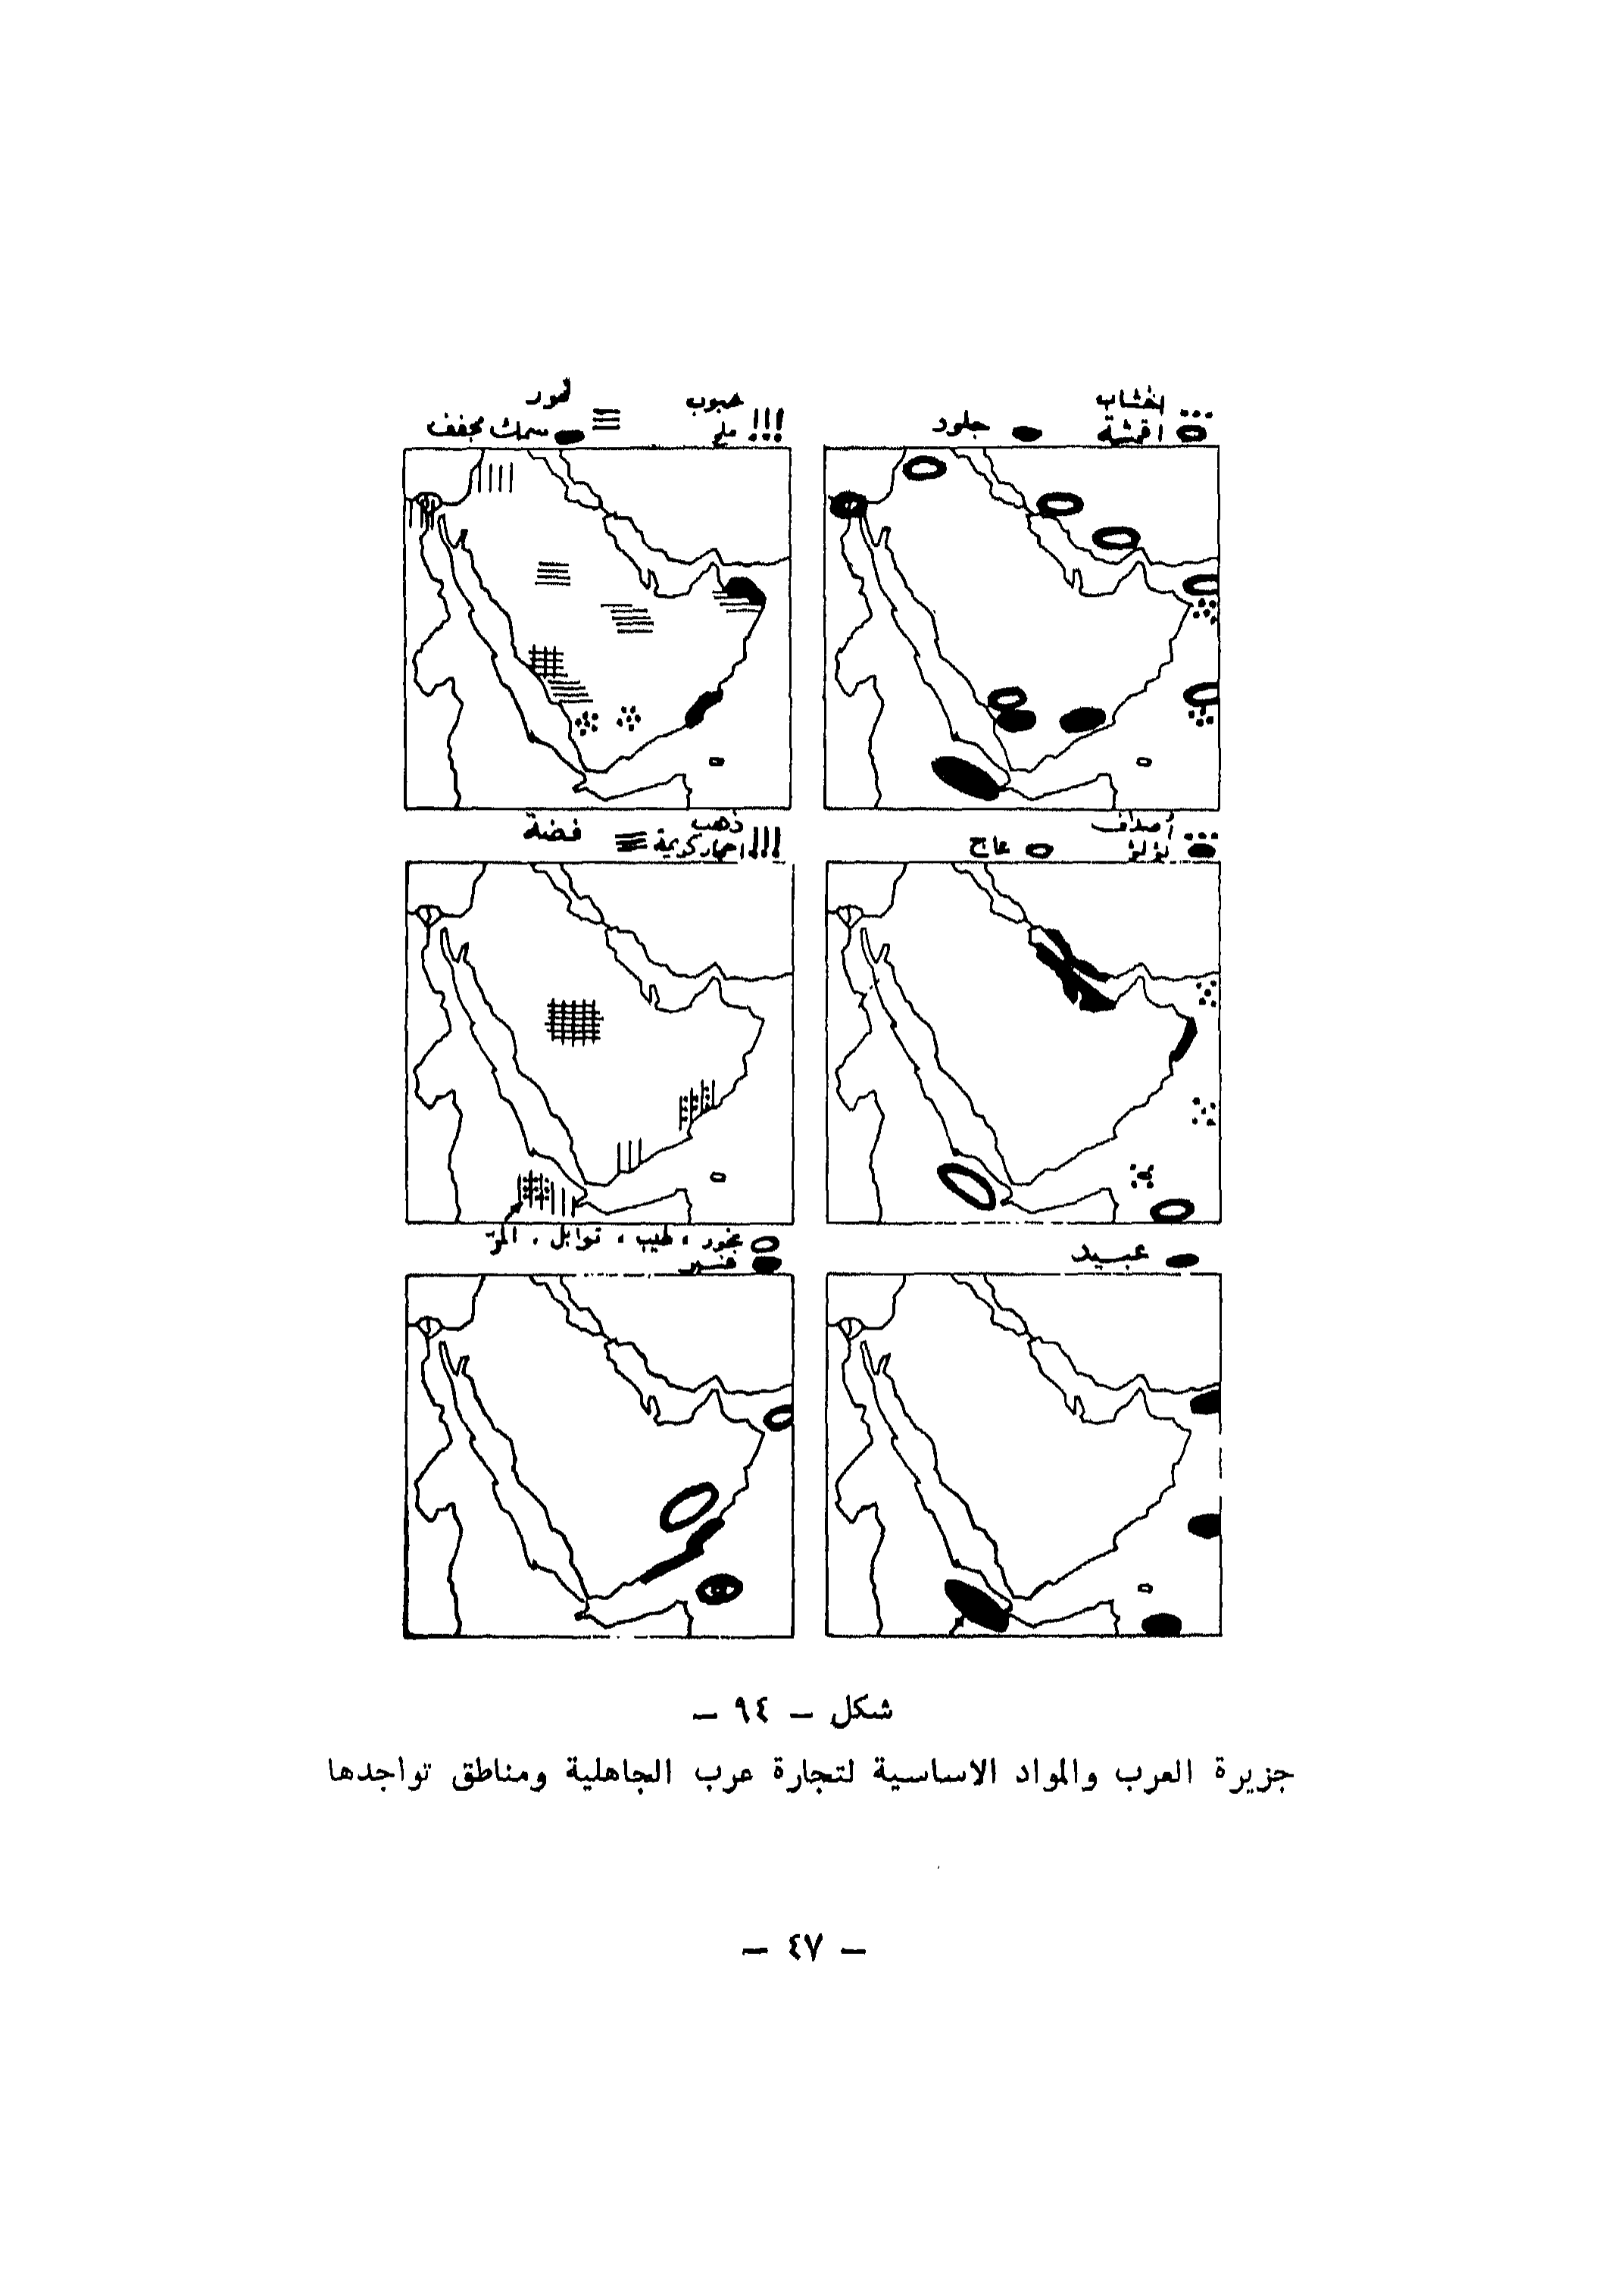 اخشاب
اقمشة
جلود
حبوب
ملح
تمور
سمك مجفف
أصداف
لؤلؤ
عاج
ذهب
احجار كريمة
فضة
عبيد
بخور ، طيب ، توابل ،
شكل – ٩٤ –
جزيرة العرب والمواد الاساسية لتجارة عرب الجاهلية ومناطق تواجدها
– ٤٧ –